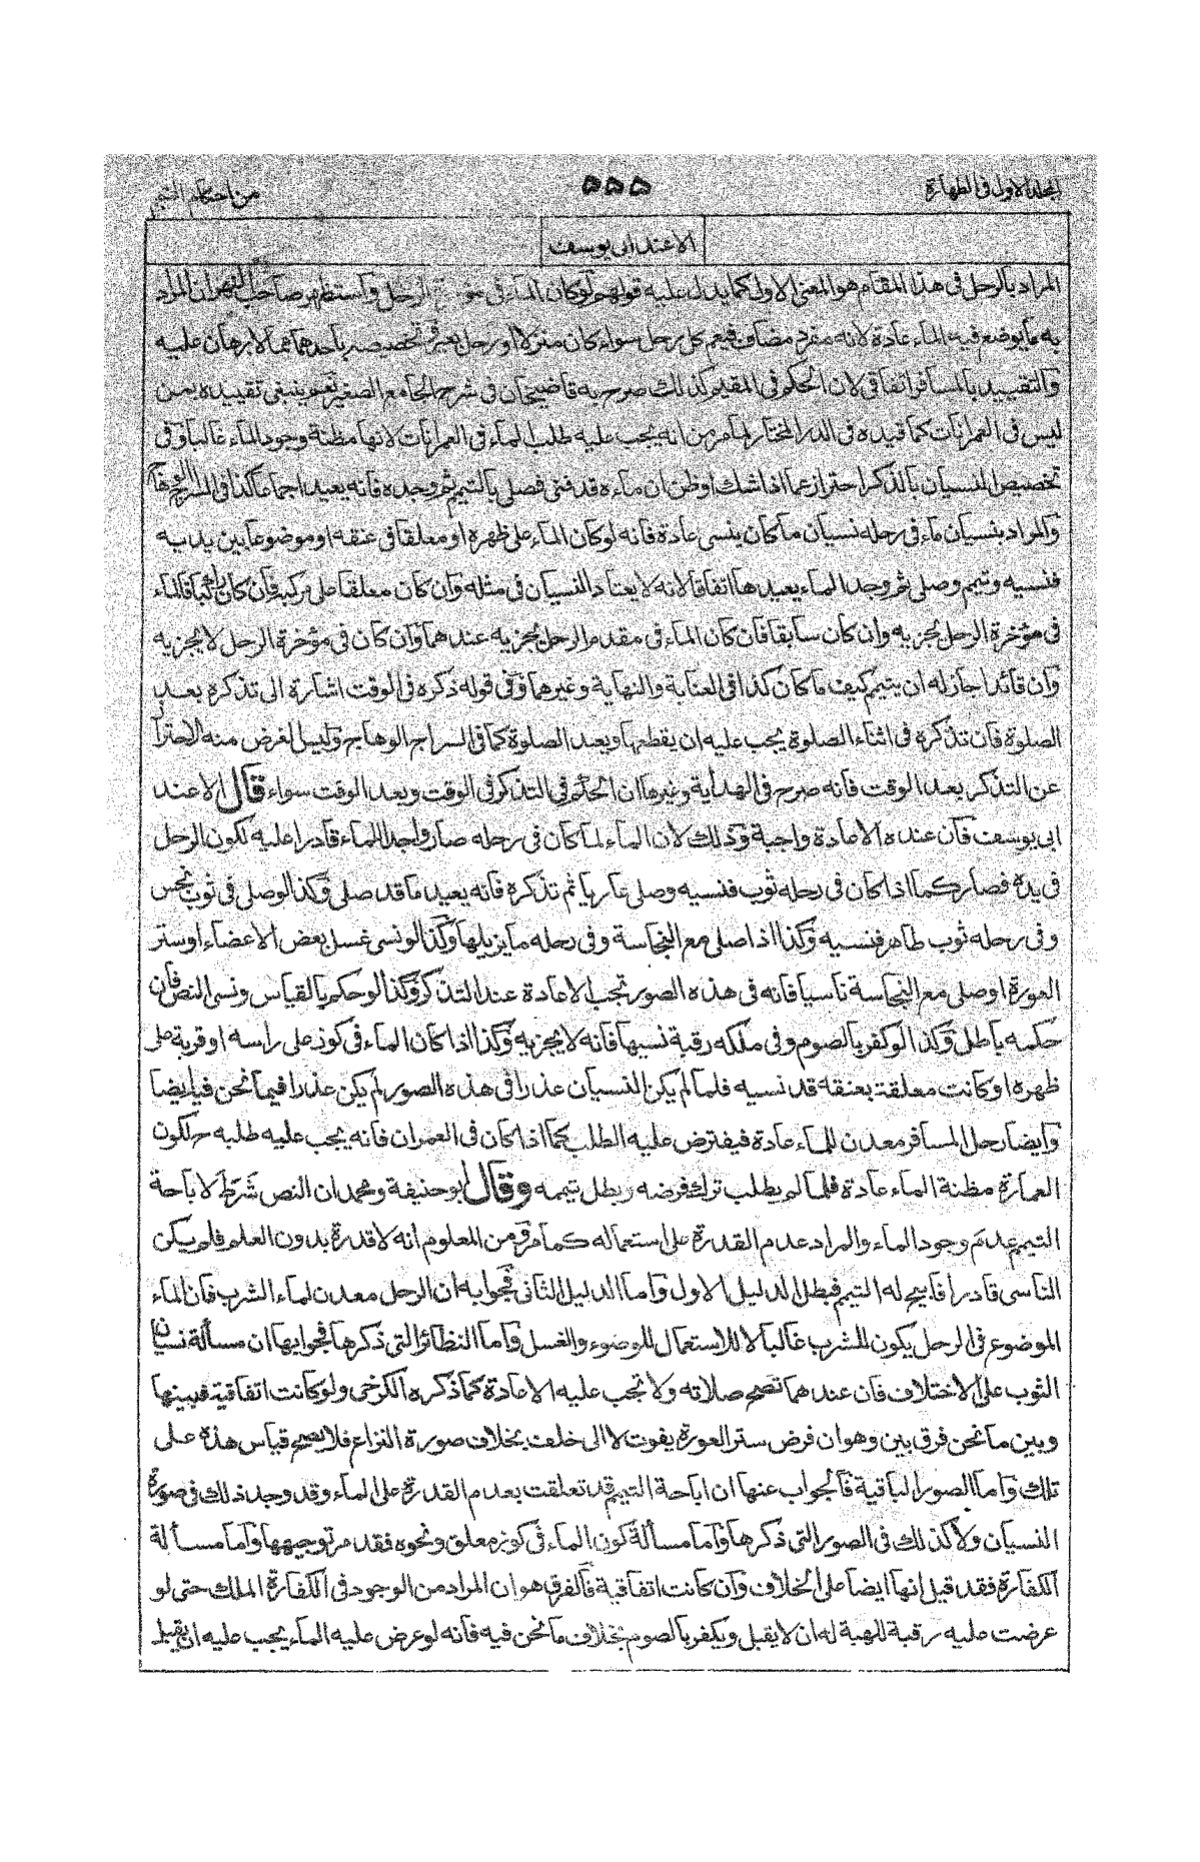 المجلد الاول فى الطهارة ۵۵۵ من احكام التيمم
الا عند ابى يوسف
المراد بالرحل فى هذا المقام هو المعنى الاول كما يدل عليه قولهم لو كان الماء فى الرحل واستظهر صاحب النهر ان المراد
به ما يوضع فيه الماء عادة لانه مفرد مضاف فيعم كل رحل سواء كان منزلا او رحل بعير فتخصيصه باحدهما مما لا برهان عليه
والتقييد بالمسافر اتفاقى لان الحكم فى المقيم كذلك صرح به قاضيخان فى شرح الجامع الصغير نعم ينبغى تقييده بمن
ليس فى العمرانات كما قيده فى الدر المختار لما مر من انه يجب عليه طلب الماء فى العمرانات لانها مظنة وجود الماء غالبا وفى
تخصيص النسيان بالذكر احتراز عما اذا شك او ظن ان ماءه قد فنى فصلى بالتيمم ثم وجده فانه يعيد اجماعا كذا فى السراج الوهاج
والمراد بنسيان ماء فى رحله نسيان ما كان ينسى عادة فانه لو كان الماء على ظهره او معلقا فى عنقه او موضوعا بين يديه
فنسيه وتيمم وصلى ثم وجد الماء يعيدها اتفاقا لانه لا يعتاد النسيان فى مثله وان كان معلقا على مركبه فان كان راكبا فالماء
فى مؤخرة الرحل يجزيه وان كان سابقا فان كان الماء فى مقدم الرحل يجزيه عندهما وان كان فى مؤخرة الرحل لا يجزيه
وان قائدا جاز له ان يتيمم كيف ما كان كذا فى العناية والنهاية وغيرهما وفى قوله ذكره فى الوقت اشارة الى تذكره بعد
الصلوة فان تذكره فى اثناء الصلوة يجب عليه ان يقطعها ويعيد الصلوة كما فى السراج الوهاج وليس الغرض منه الاحتراز
عن التذكر بعد الوقت فانه صرح فى الهداية وغيرها ان الحكم فى التذكر فى الوقت وبعد الوقت سواء قال الا عند
ابى يوسف فان عنده الاعادة واجبة وذلك لان الماء لما كان فى رحله صار واجدا للماء قادرا عليه لكون الرحل
فى يده فصار كما اذا كان فى رحله ثوب فنسيه وصلى عاريا ثم تذكره فانه يعيد ما قد صلى وكذا لو صلى فى ثوب نجس
وفى رحله ثوب طاهر فنسيه وكذا اذا صلى مع النجاسة وفى رحله ما يزيلها وكذا لو نسى غسل بعض الاعضاء او ستر
العورة او صلى مع النجاسة ناسيا فانه فى هذه الصور تجب الاعادة عند التذكر وكذا لو حكم بالقياس ونسى النص فان
حكمه باطل وكذا لو كفر بالصوم وفى ملكه رقبة نسيها فانه لا يجزيه وكذا اذا كان الماء فى كوز على راسه او قربة على
ظهره او كانت معلقة بعنقه قد نسيه فلما لم يكن النسيان عذرا فى هذه الصور لم يكن عذرا فيما نحن فيه ايضا
وايضا رحل المسافر معدن للماء عادة فيفترض عليه الطلب كما اذا كان فى العمران فانه يجب عليه طلبه لكون
العمارة مظنة الماء عادة فلما لم يطلب ترك فرضه وبطل تيممه وقال ابو حنيفة ومحمد ان النص شرط لاباحة
التيمم عدم وجود الماء والمراد عدم القدرة على استعماله كما مر ومن المعلوم انه لا قدرة بدون العلم فلم يكن
الناسى قادرا فابيح له التيمم فبطل الدليل الاول واما الدليل الثانى فجوابه ان الرحل معدن لماء الشرب فان الماء
الموضوع فى الرحل يكون للشرب غالبا لا للاستعمال للوضوء والغسل واما النظائر التى ذكرها فجوابها ان مسألة نسيان
الثوب على الاختلاف فان عندهما تصح صلاته ولا تجب عليه الاعادة كما ذكره الكرخى ولو كانت اتفاقية فبينها
وبين ما نحن فرق بين وهو ان فرض ستر العورة يفوت لا الى خلف بخلاف صورة النزاع فلا يصح قياس هذه على
تلك واما الصور الباقية فالجواب عنها ان اباحة التيمم قد تعلقت بعدم القدرة على الماء وقد وجد ذلك فى صورة
النسيان ولا كذلك فى الصور التى ذكرها واما مسألة كون الماء فى كوز معلق ونحوه فقد مر توجيهها واما مسألة
الكفارة فقد قيل انها ايضا على الخلاف وان كانت اتفاقية فالفرق هو ان المراد من الوجود فى الكفارة الملك حتى لو
عرضت عليه رقبة للهبة له ان لا يقبل ويكفر بالصوم بخلاف ما نحن فيه فانه لو عرض عليه الماء يجب عليه ان يقبله